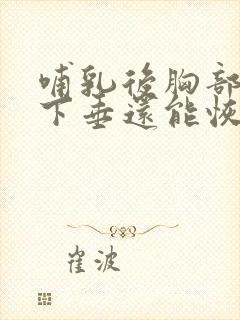 哺乳後胸部
下垂還能恢
崔波